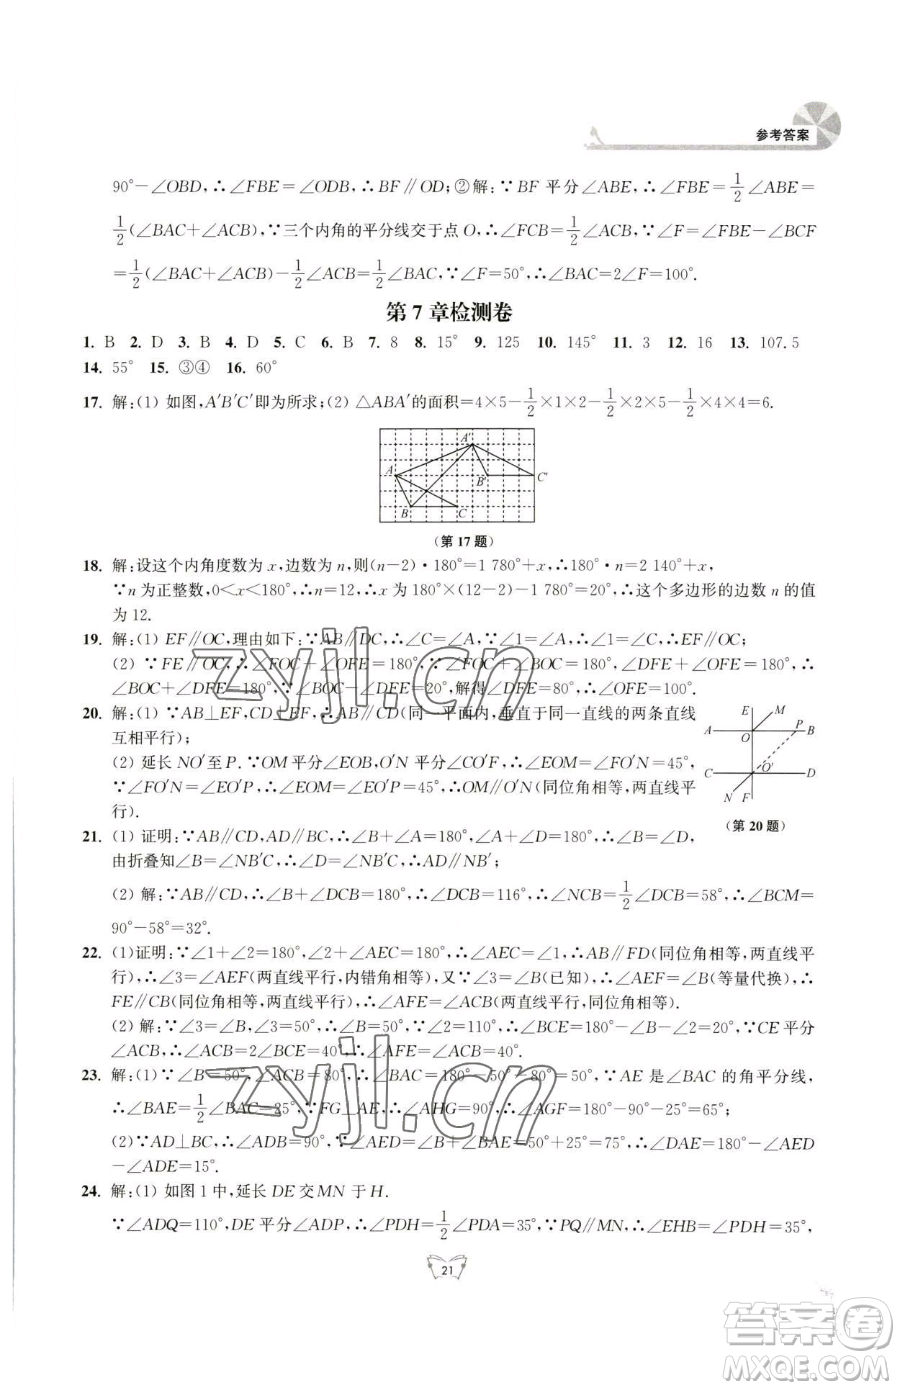 参考答案
90°－∠OBD,∴∠FBE＝∠ODB,∴BF∥OD;②解:∵BF平分∠ABE,∴∠FBE＝1/2∠ABE＝
1/2(∠BAC＋∠ACB),∵三个内角的平分线交于点O,∴∠FCB＝1/2∠ACB,∵∠F＝∠FBE－∠BCF
＝1/2(∠BAC＋∠ACB)－1/2∠ACB＝1/2∠BAC,∵∠F＝50°,∴∠BAC＝2∠F＝100°.
第7章检测卷
1. B 2. D 3. B 4. D 5. C 6. B 7. 8 8. 15° 9. 125 10. 145° 11. 3 12. 16 13. 107.5
14. 55° 15. ③④ 16. 60°
17. 解:(1) 如图,A′B′C′即为所求;(2) △ABA′的面积＝4×5－1/2×1×2－1/2×2×5－1/2×4×4＝6.
A A′ B B′ C C′
(第17题)
18. 解:设这个内角度数为x,边数为n,则(n－2)·180°＝1 780°＋x,∴180°n＝2 140°＋x,
∵n为正整数,0＜x＜180°,∴n＝12,∴x为180°×(12－2)－1 780°＝20°,∴这个多边形的边数n的值
为12.
19. 解:(1) EF∥OC,理由如下:∵AB∥DC,∴∠C＝∠A,∵∠1＝∠A,∴∠1＝∠C,∴FE∥OC;
(2) ∵FE∥OC,∴∠FOC＋∠OFE＝180°,∵∠FOC＋∠BOC＝180°,∠DFE＋∠OFE＝180°,∴
∠BOC＋∠DFE＝180°,∵∠BOC－∠DFE＝20°,解得∠DFE＝80°,∴∠OFE＝100°.
20. 解:(1) ∵AB⊥EF,CD⊥EF,∴AB∥CD(同一平面内,垂直于同一直线的两条直线
互相平行);
(2) 延长NO′至P.∵OM平分∠EOB,O′N平分∠CO′F,∴∠EOM＝∠FO′N＝45°,
∵∠FO′N＝∠EO′P＝45°,∴∠EOM＝∠EO′P＝45°,∴OM∥O′N(同位角相等,两直线平
行).
E M A O P B C O′ D N F
(第20题)
21. (1) 证明:∵AB∥CD,AD∥BC,∴∠B＋∠A＝180°,∠A＋∠D＝180°,∴∠B＝∠D,
由折叠知∠B＝∠NB′C,∴∠D＝∠NB′C,∴AD∥NB′;
(2) 解:∵AB∥CD,∴∠B＋∠DCB＝180°,∴∠DCB＝116°,∴∠NCB＝1/2∠DCB＝58°,∴∠BCM＝
90°－58°＝32°.
22. (1)证明:∵∠1＋∠2＝180°,∠2＋∠AEC＝180°,∴∠AEC＝∠1,∴AB∥FD(同位角相等,两直线平
行),∴∠3＝∠AEF(两直线平行,内错角相等),又∵∠3＝∠B(已知),∴∠AEF＝∠B(等量代换),∴
FE∥CB(同位角相等,两直线平行),∴∠AFE＝∠ACB(两直线平行,同位角相等).
(2) 解:∵∠3＝∠B,∴∠B＝50°,∵∠2＝110°,∴∠BCE＝180°－∠B－∠2＝20°,∵CE平分
∠ACB,∴∠ACB＝2∠BCE＝40°,∴∠AFE＝∠ACB＝40°.
23. 解:(1) ∵∠B＝50°,∠ACB＝80°,∴∠BAC＝180°－50°－80°＝50°,∵AE是∠BAC的角平分线,
∴∠BAE＝1/2∠BAC＝25°,∵FG⊥AE,∴∠AHG＝90°,∴∠AGF＝180°－90°－25°＝65°;
(2)∵AD⊥BC,∴∠ADB＝90°,∵∠AED＝∠B＋∠BAE＝50°＋25°＝75°,∴∠DAE＝180°－∠AED
－∠ADE＝15°.
24. 解:(1) 如图1中,延长DE交MN于H.
∵∠ADQ＝110°,DE平分∠ADP,∴∠PDH＝1/2∠PDA＝35°,∵PQ∥MN,∴∠EHB＝∠PDH＝35°,
21
zyjl.cn
zyjl.cn
答案圈
MXQE.COM